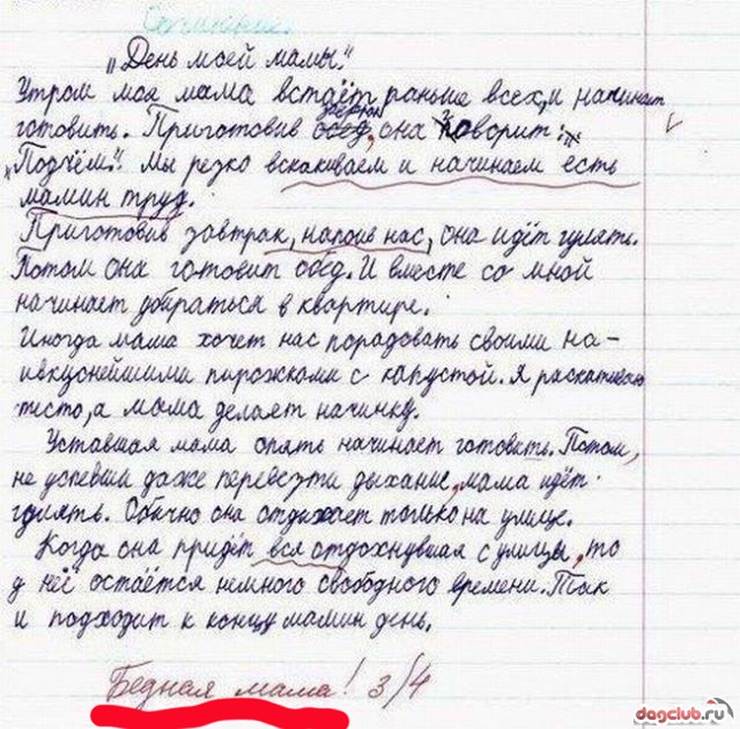 Сочинение.
„День моей мамы."
Утром моя мама встаёт раньше всех, и начинает
завтрак
готовить. Приготовив обед, она говорит:
„Подъём." Мы резко вскакиваем и начинаем есть
мамин труд.
Приготовив завтрак, напоив нас, она идёт гулять.
Потом она готовит обед. И вместе со мной
начинает убираться в квартире.
Иногда мама хочет нас порадовать своими на-
ивкуснейшими пирожками с капустой. Я раскатываю
тесто, а мама делает начинку.
Уставшая мама опять начинает готовить. Потом,
не успевши даже перевезти дыхание, мама идёт
гулять. Обычно она отдыхает только на улице.
Когда она придёт вся отдохнувшая с улицы, то
у неё остаётся немного свободного времени. Так
и подходит к концу мамин день.
Бедная мама! 3/4
dagclub.ru